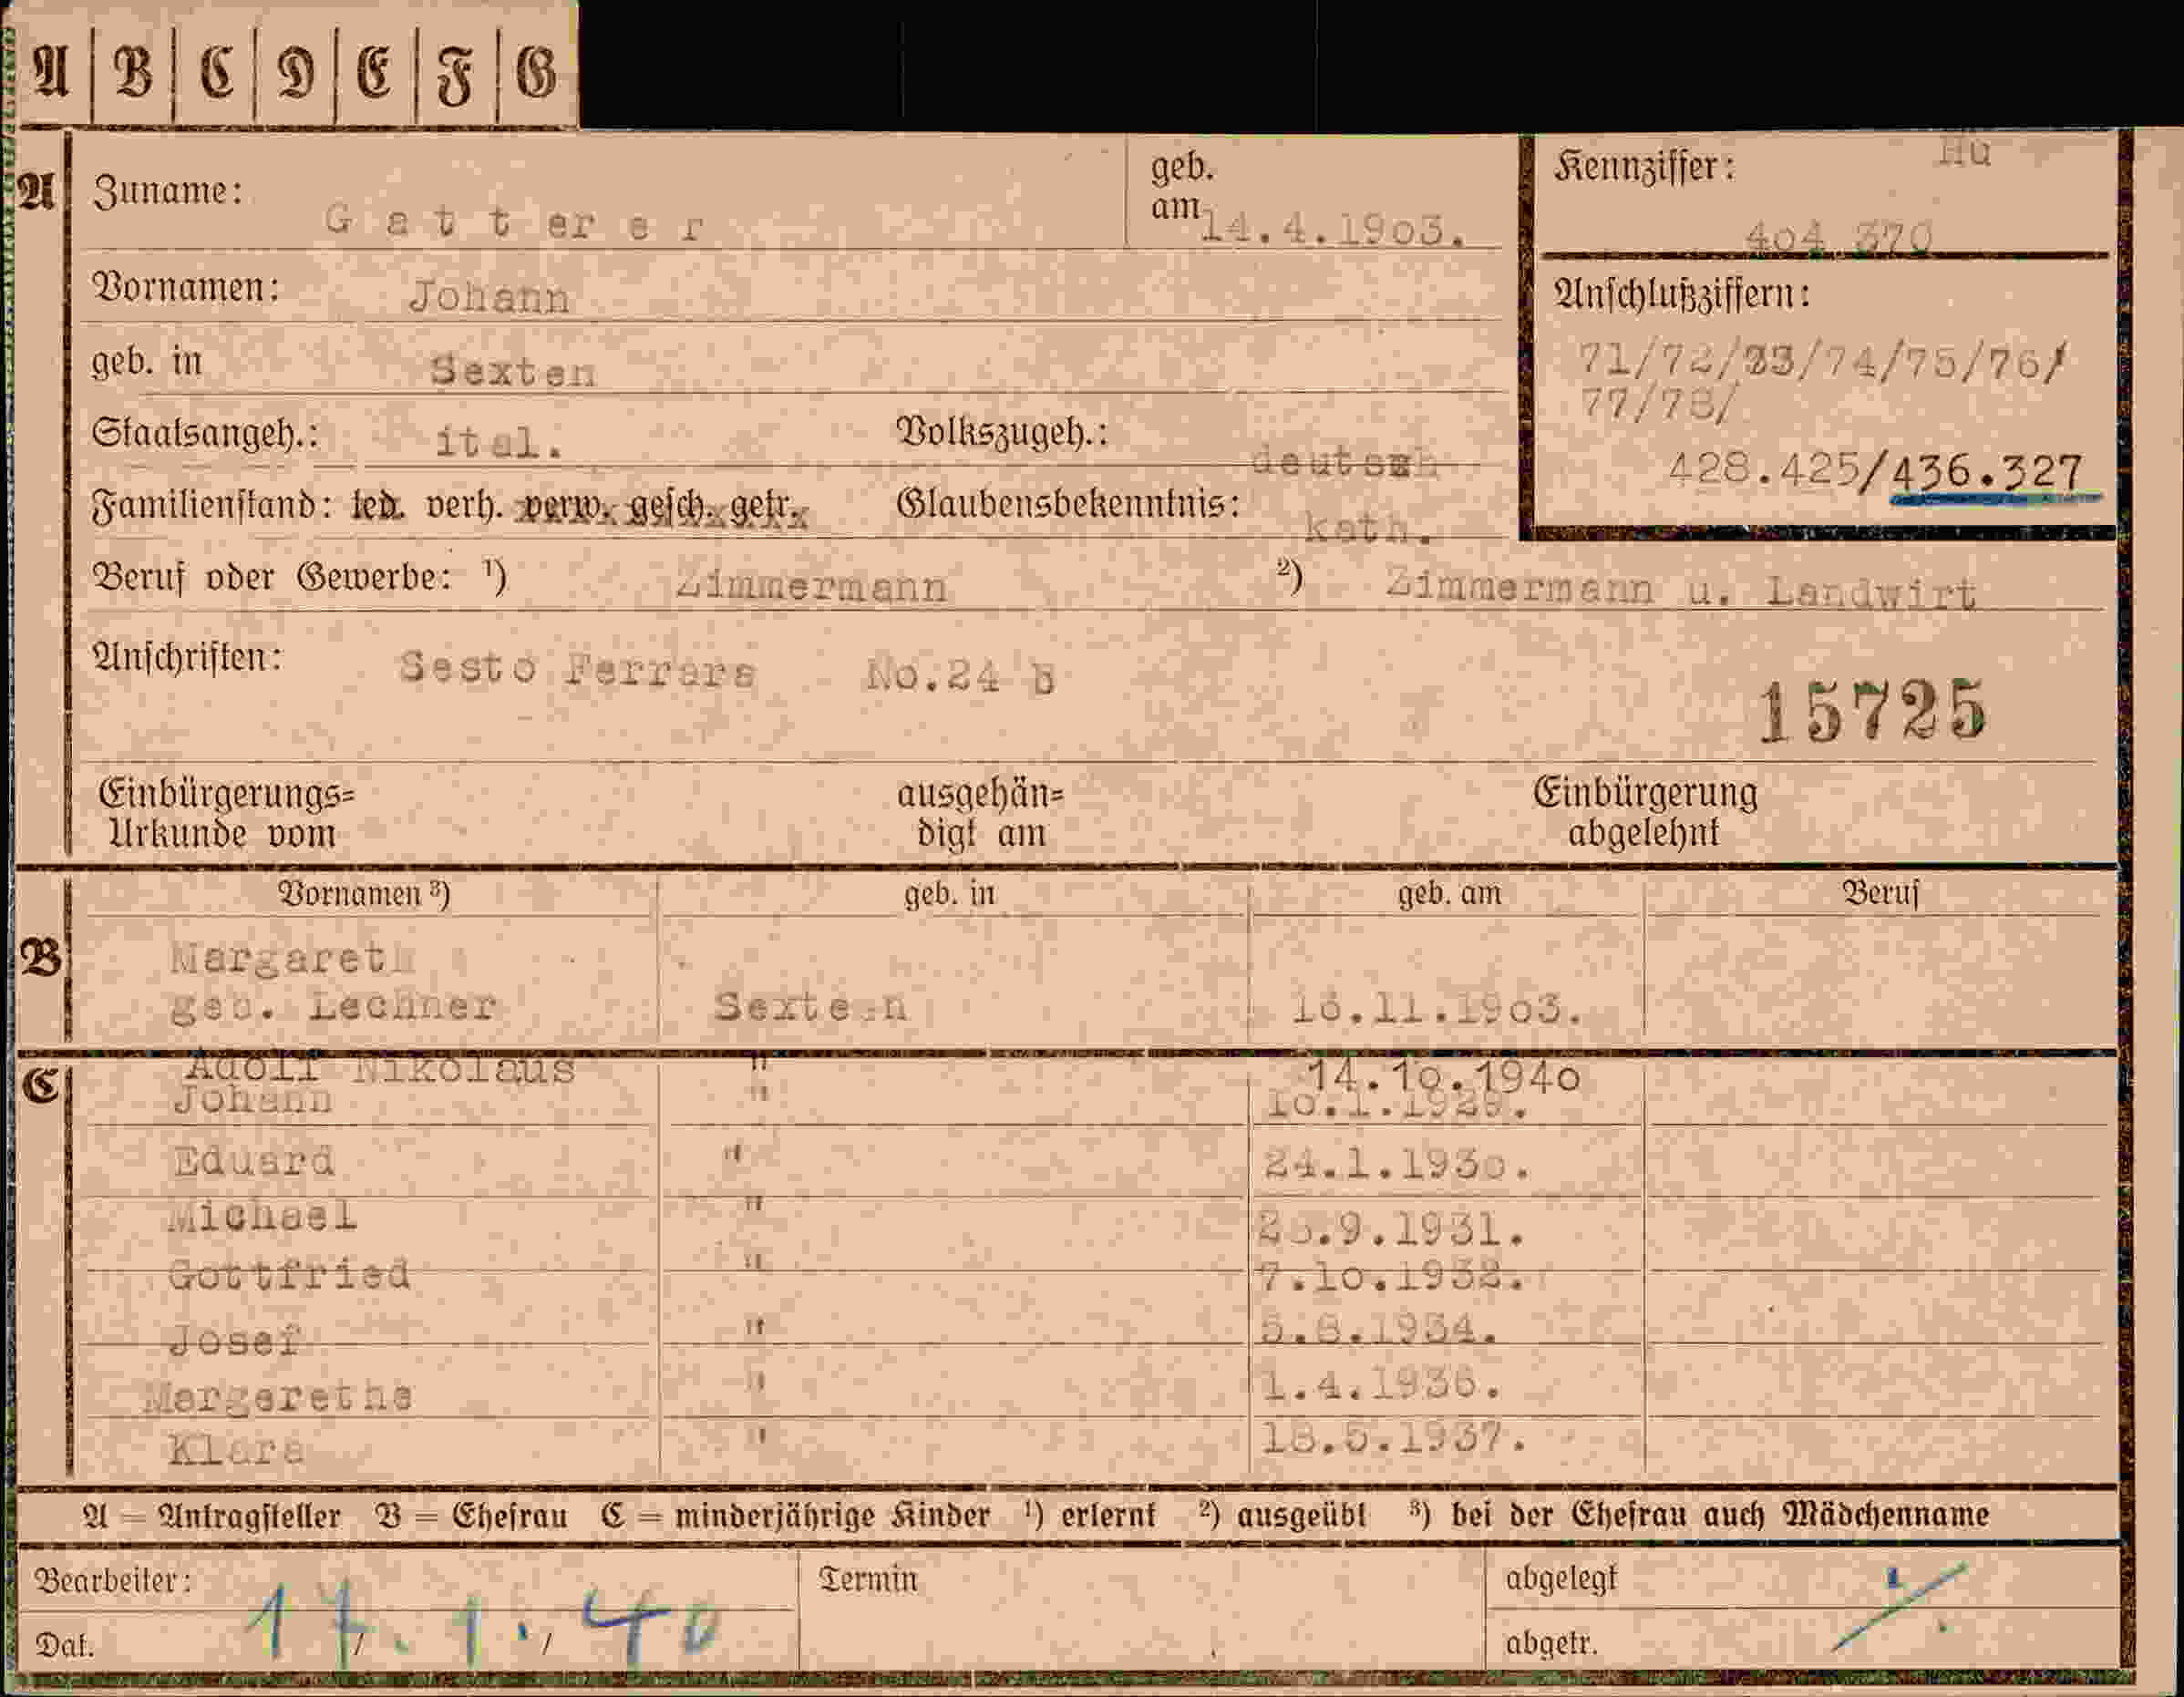 A | B | C | D | E | F | G
Hü
A Zuname: Gatterer geb. am 14.4.1903. Kennziffer: 404 370
Vornamen: Johann
Anschlußziffern:
geb. in Sexten 71/72/73/74/75/76/
77/78/
Staatsangeh.: ital. Volkszugeh.: deutsch
428.425/436.327
Familienstand: led. verh. verw. gesch. getr. Glaubensbekenntnis: kath.
Beruf oder Gewerbe: ¹) Zimmermann ²) Zimmermann u. Landwirt
Anschriften: Sesto Ferrara No.24 b
15725
Einbürgerungs= ausgehän= Einbürgerung
Urkunde vom digt am abgelehnt
Vornamen ³) geb. in geb. am Beruf
B Margareth
geb. Lechner Sexten 16.11.1903.
C Adolf Nikolaus " 14.10.1940
Johann " 10.1.1929.
Eduard " 24.1.1930.
Michael " .9.1931.
Gottfried " 7.10.1932.
Josef " 5.8.1934.
Margarethe " 1.4.1936.
Klara " 18.5.1937.
A = Antragsteller B = Ehefrau C = minderjährige Kinder ¹) erlernt ²) ausgeübt ³) bei der Ehefrau auch Mädchenname
Bearbeiter: Termin abgelegt
Dat. 17. / 1. / 40 abgetr.